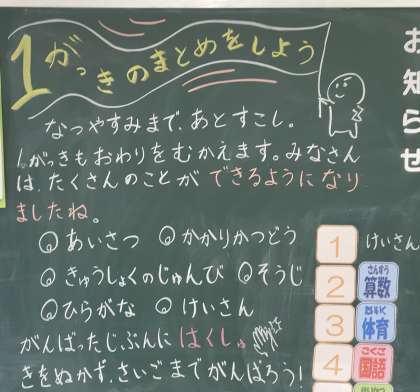 1がっきのまとめをしよう
なつやすみまで、あとすこし。
1がっきもおわりをむかえます。みなさん
は、たくさんのことが できるようになり
ましたね。
◎あいさつ ◎かかりかつどう
◎きゅうしょくのじゅんび ◎そうじ
◎ひらがな ◎けいさん
がんばったじぶんに はくしゅ
きをぬかず、さいごまでがんばろう!
お知らせ
1 けいさん
2 さんすう 算数
3 たいいく 体育
4 こくご 国語